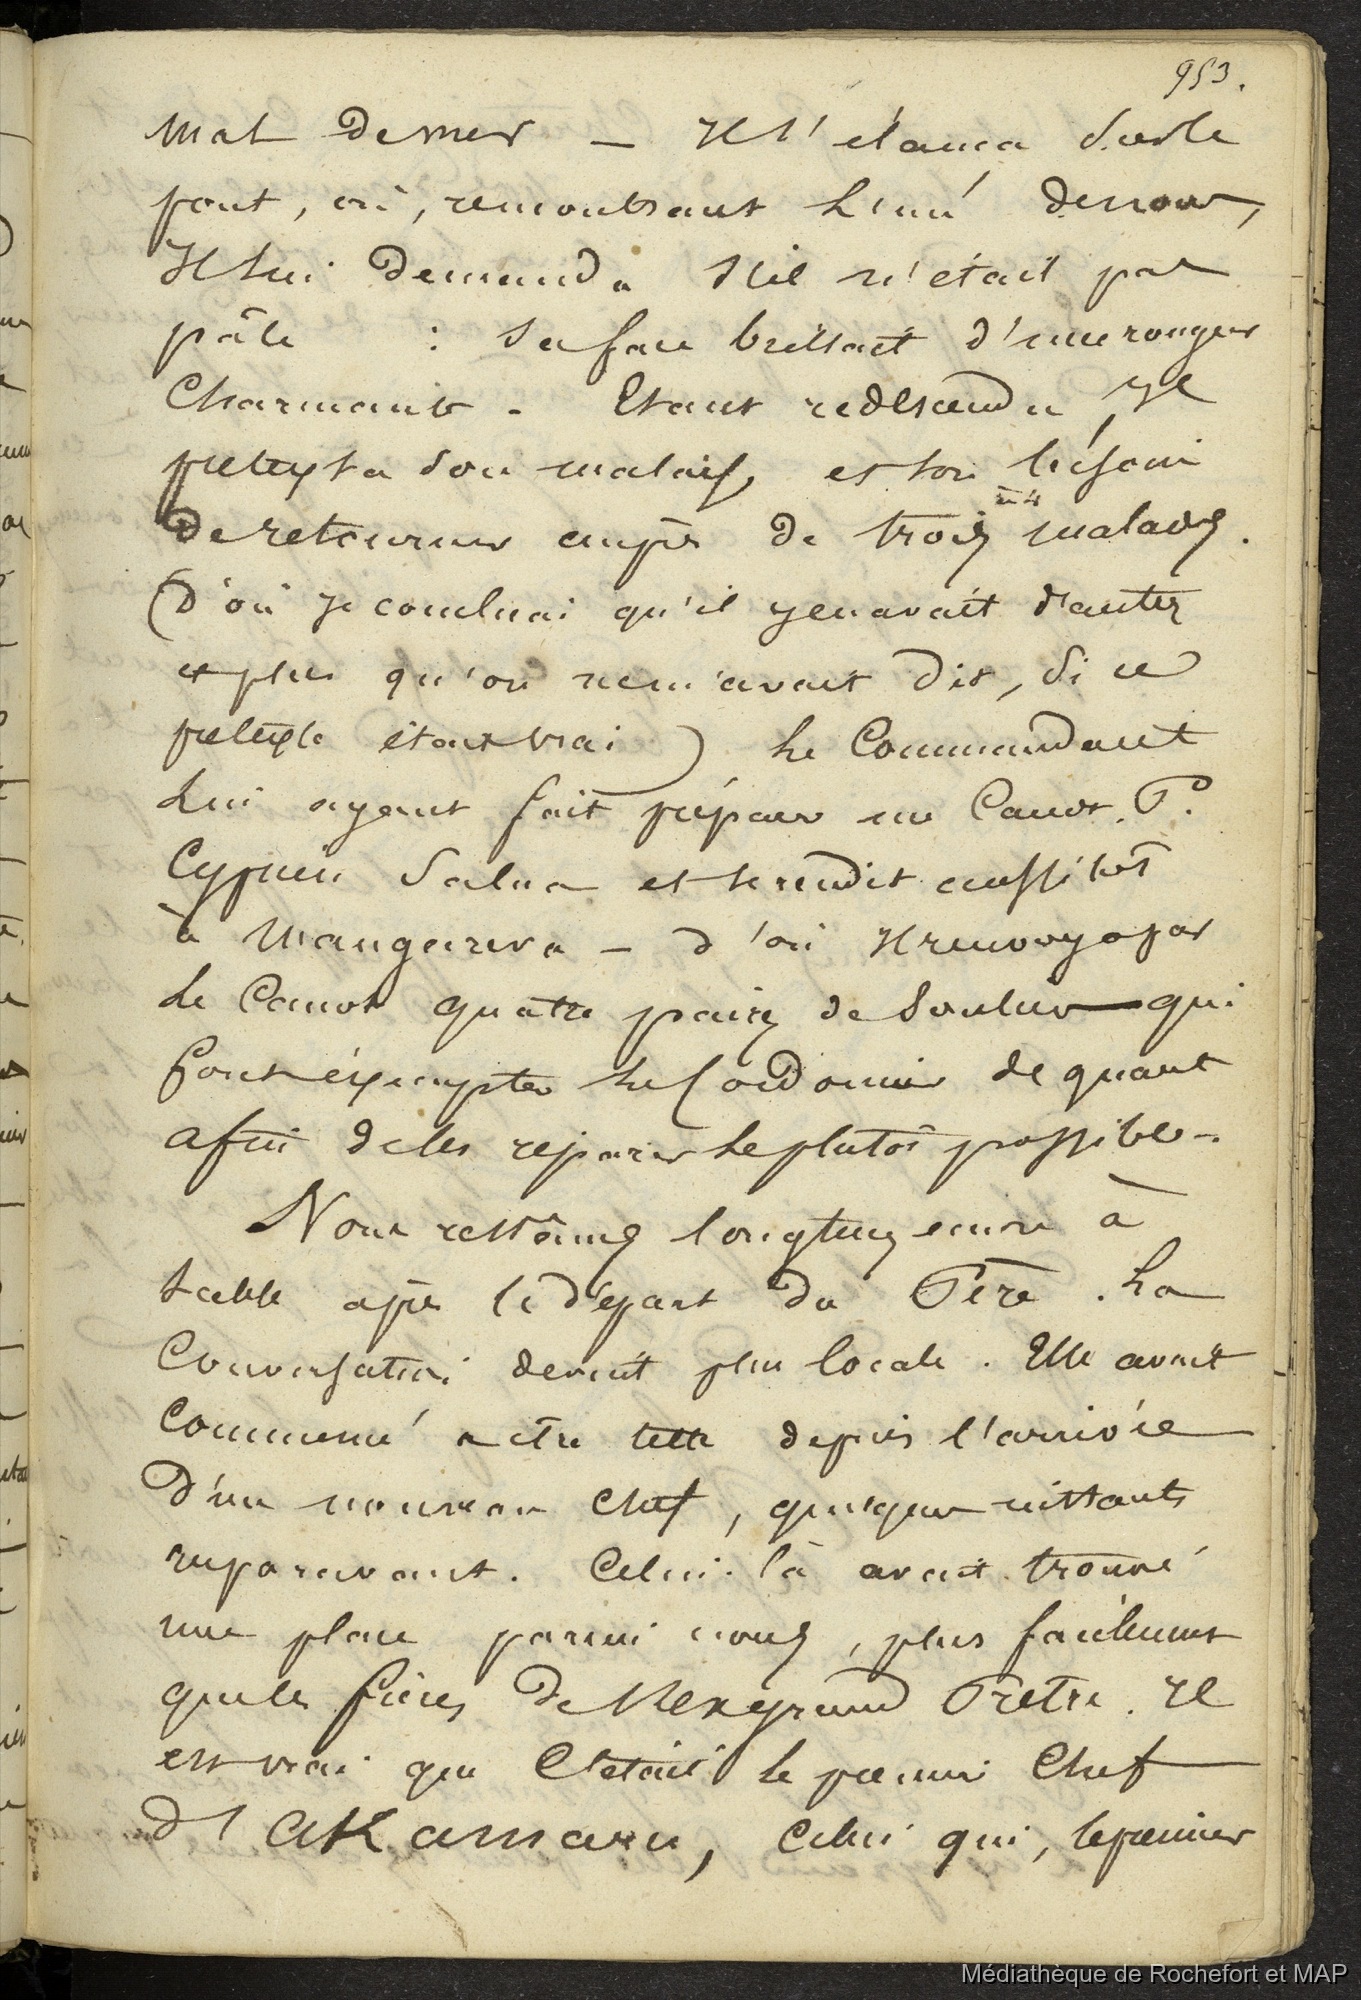 953.
mal de mer – Il s'élança sur le
pont, où, rencontrant l'un de nous,
Il lui demanda s'il n'était pas
pâle : sa face brillait d'une rougeur
Charmante. Etant redescendu, Il
prétexta son malaise, et son besoin
de retourner auprès de trois malades.
(d'où je concluai qu'il y en avait d'autres
et plus qu'on ne m'avait dit, si ce
prétexte était vrai) Le Commandant
Lui ayant fait préparer un Canot. P.
Cyprien Salua et se rendit aussitôt
à Mangareva – d'où Il renvoya par
Le Canot quatre paires de Souliers qui
font éxempter le Cordonnier de quart
afin de les réparer le plutôt possible.
Nous restâmes longtems encore à
table après le départ du Père. La
Conversation devint plus locale. Elle avait
Commencé a être telle depuis l'arrivée
d'un nouveau Chef, quelques instants
auparavant. Celui-là avait trouvé
une place parmi nous, plus facilement
que les frères de Mangrand Prêtre. Il
est vrai que C'était le premier Chef
d'AKamaru, celui qui, le premier
Médiathèque de Rochefort et MAP